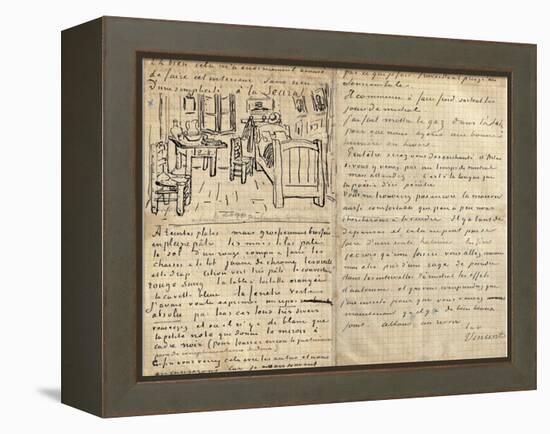 Eh bien cela m'a enormement amusé
de faire cet interieur sans rien
D'une simplicité à la Seurat.
A teintes plates mais grossierement brossées
en pleine pâte les murs lilas pale
le sol d'un rouge rompu & fané les
chaises & le lit jaune de chrome les oreillers
et le drap citron vert très pâle la couverture
rouge sang la table à toilette orangée
la cuvette bleue la fenetre verte
J'avais voulu exprimer un repos
absolu par tous ces tons très divers
vous voyez et où il n'y a de blanc que
la petite note que donne le miroir à
cadre noir (pour fourrer encore la quatrieme
paire de complementaires dedans
Enfin vous verrez cela avec les autres et nous
en causerons car je ne sais souvent
pas ce que je fais travaillant presqu'en
somnambule.
Il commence à faire froid surtout les
jours de mistral
J'ai fait mettre le gaz dans l'atelier
pour que nous ayons une bonne
lumière en hiver.
Peutetre serez vous desenchanté d'Arles
si vous y venez par un temps de mistral
mais attendez.. C'est à la longue que
la poesie d'ici penètre
Vous ne trouverez pas encore la maison
aussi comfortable que peu à peu nous
chercherons à la rendre Il y a tant de
dépenses et cela ne peut pas se
faire d'une seule haleine Enfin
je crois qu'une fois ici vous allez comme
moi etre pris d'une rage de peindre
dans les intervalles du mistral les effets
d'automne et que vous comprendrez que
j'ai insisté pour que vous veniez
maintenant qu'il y a de bien beaux
jours allons au revoir
Vincent